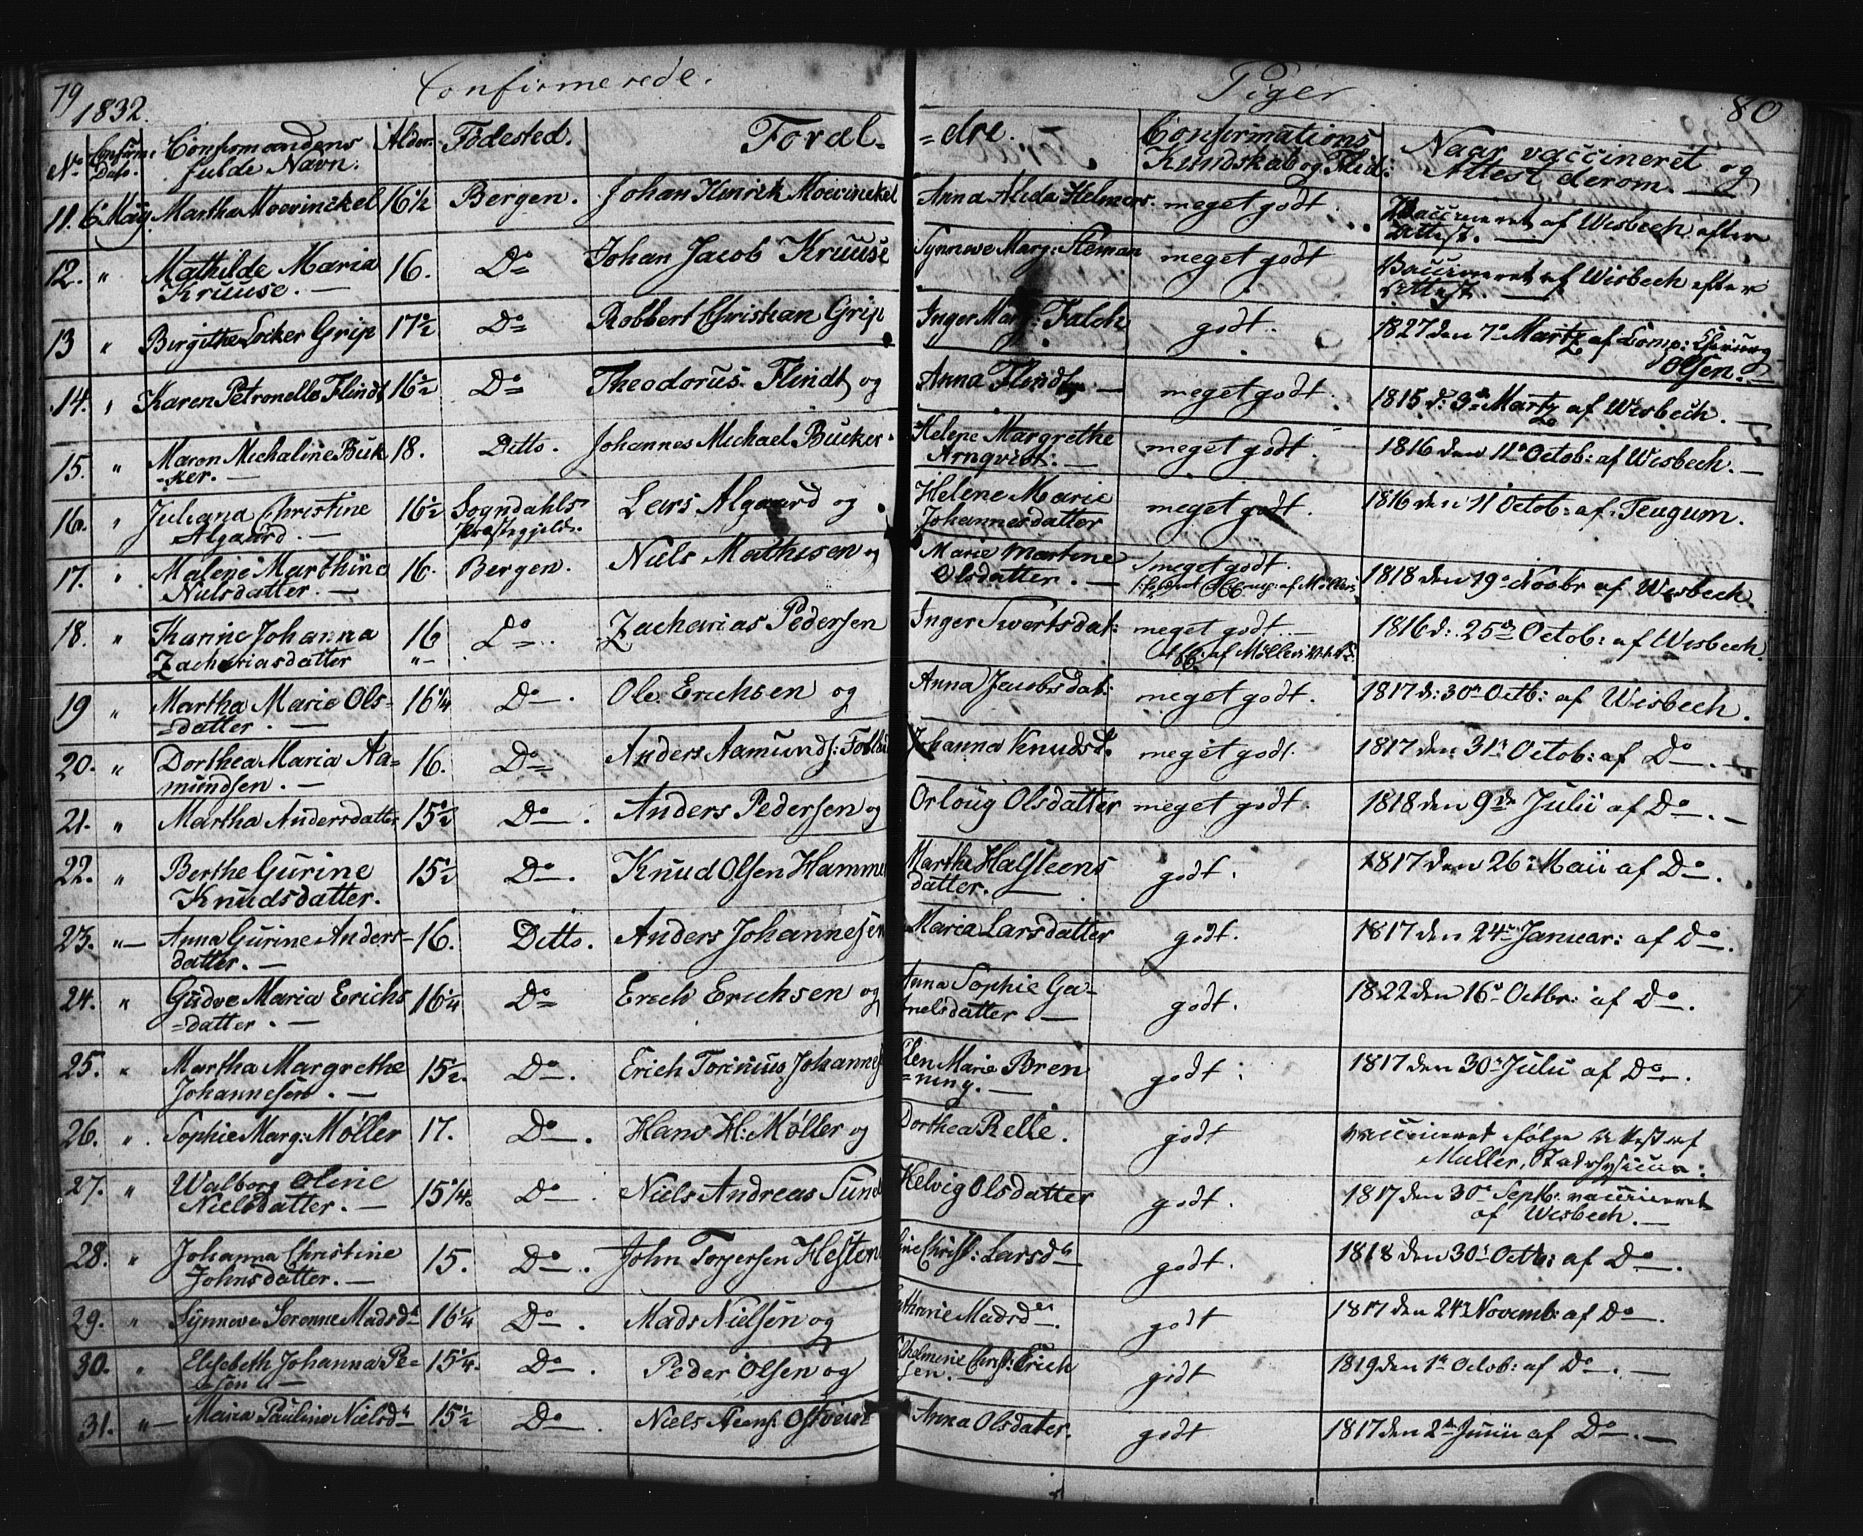 79 Confirmerede. Piger 80
1832.
No Confirm: Dato. Confirmandens fulde Navn. Alder. Födested. Foræl- =dre. Confirmations Kundskab og Flid: Naar vaccineret og Attest derom.
11. 6 May. Martha Mowinckel 16½ Bergen. Johan Hinrich Mowinckel Anna Alida Helmers. meget godt. Vaccineret af Wisbech efter Attest. —
12. " Mathilde Maria Kruuse. — 16. Do Johan Jacob Kruuse Synneve Marg: Steman meget godt Vaccineret af Wisbech efter Attest. —
13 " Birgithe Locker Grip 17½ Do Robbert Christian Grip Inger Marg: Falch godt. 1827 den 7de Martz af Comp: Chirurg Olsen. —
14. " Karen Petronelle Flindt 16½ Do Theodorus Flindt og Anna Flindt — meget godt. 1815 d: 3de Martz af Wisbech. —
15. " Maren Michaline Bük- =ker. — 18. Ditto. Johannes Michael Bücker Helene Margrethe Arnqvist. — meget godt. 1816 den 11te Octob: af Wisbech. —
16. " Juliana Christine Algaard. — 16½ Sogndahls Præstegjeld. Lars Algaard og Helene Marie Johannesdatter meget godt. 1816 den 11 Octob: af Teugum.
17. " Malene Marthine Nielsdatter. — 16. Bergen. Niels Mathisen og Marie Martine Olsdatter. — meget godt. af Møller 1818 den 19de Novbr af Wisbech.
18. " Karine Johanna Zachariasdatter 16 Do Zacharias Pedersen Inger Swertsdat: meget godt. — af Møller 1816 d: 25de Octob: af Wisbech.
19 " Martha Marie Ols- =datter. — 16¼ Do. Ole Erichsen og Anna Jacobsdat: meget godt. 1817 d: 30te Octb: af Wisbech.
20. " Dorthea Maria Aa- mundsen. — 16. Do Anders Aamunds: Johanna Knudsd. meget godt. 1817 den 31te Octob: af Do. —
21. " Martha Andersdatter 15½ Do. Anders Pedersen og Orloug Olsdatter meget godt. 1818 den 9de Julii af Do. —
22. " Berthe Gurine Knudsdatter. 15½ Do. Knud Olsen Hammer Marthe Halsteens datter. — godt. 1817 den 26 Maii af Do.
23. " Anna Gurine Anders- datter. — 16. Ditto. Anders Johannesen Maria Larsdatter godt. 1817 den 24de Januar: af Do.
24. " Gudve Maria Erichs =datter. — 16¼ Do Erich Erichsen og Anna Sophie Ga- nelsdatter. — godt. 1822 den 16de Octbr: af Do.
25. " Martha Margrethe Johannesen. — 15½. Do. Erich Torinius Johannes Elen Marie Bren =ning. — godt. 1817 den 30te Julii af Do.
26. " Sophie Marg: Møller 17. Do. Hans H: Møller og Dorthea Relle. godt vaccineret ifølge Attest af Müller, Stadsfysicus.
27. " Walborg Oline Nielsdatter. — 15¼. Do. Niels Andreas Sund Helvig Olsdatter godt. 1817 den 30te Septb: vaccineret af Wisbech. —
28. " Johanna Christine Johnsdatter. — 15. Do. John Torgersen Hesten ine Christ: Larsd. godt. 1818 den 30te Octb: af Do.
29. " Synneve Serenne Madsd. 16¼ Do. Mads Nielsen og athrine Madsd. godt 1817 den 24de Novemb: af Do.
30. " Elisebeth Johanna Pe- =sen — 15¼. Do. Peder Olsen og helmine Christ: Erich sen. — godt 1819 den 1te Octob: af Do. —
31. " Maria Pauline Nielsd. 15½ Do. Niels Anna Olsdater. godt 1817 den 2den Junii af Do. —